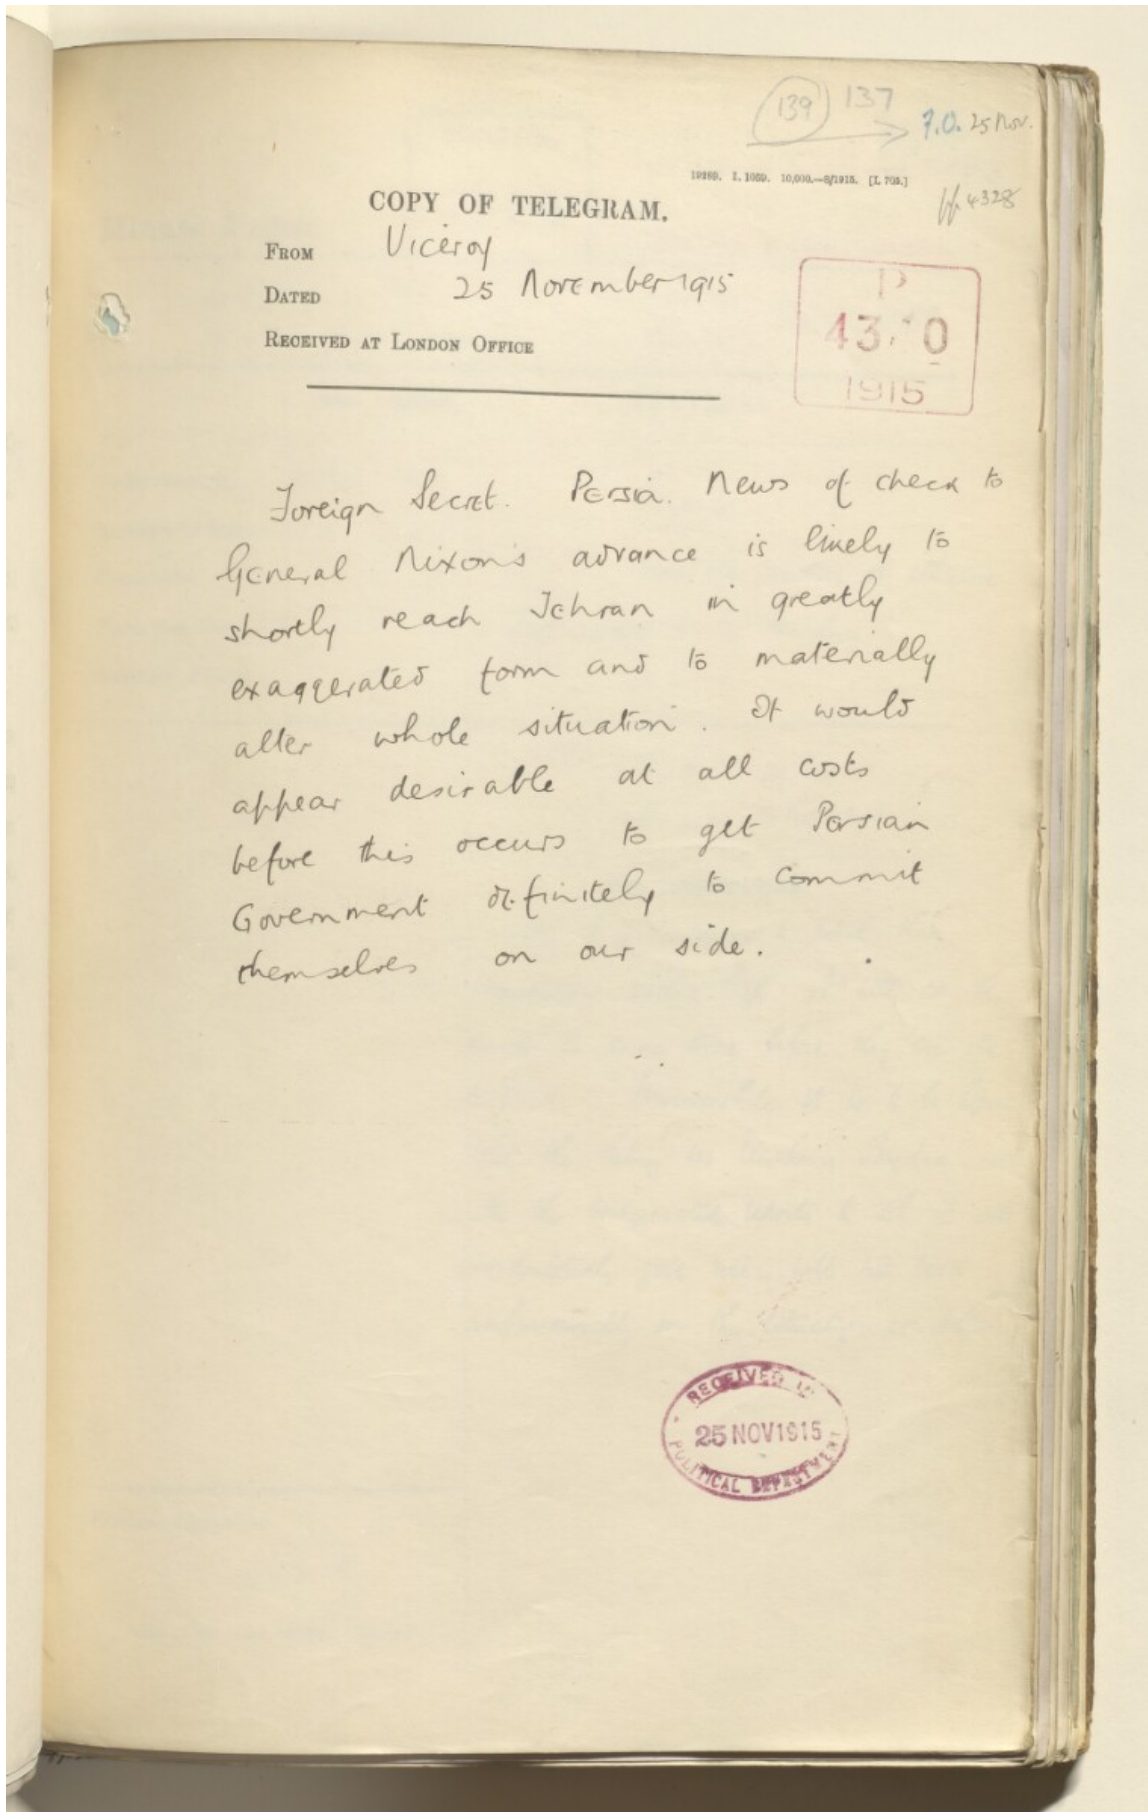 139 137
F.O. 25 Nov.
19289. I. 1059. 10,000.—8/1915. [I. 705.]
4328
COPY OF TELEGRAM.
FROM Viceroy
DATED 25 November 1915
RECEIVED AT LONDON OFFICE
P
43 0
1915
Foreign Secret. Persia. News of check to
General Nixon's advance is likely to
shortly reach Tehran in greatly
exaggerated form and to materially
alter whole situation. It would
appear desirable at all costs
before this occurs to get Persian
Government definitely to commit
themselves on our side.
RECEIVED IN
25 NOV 1915
POLITICAL DEPARTMENT